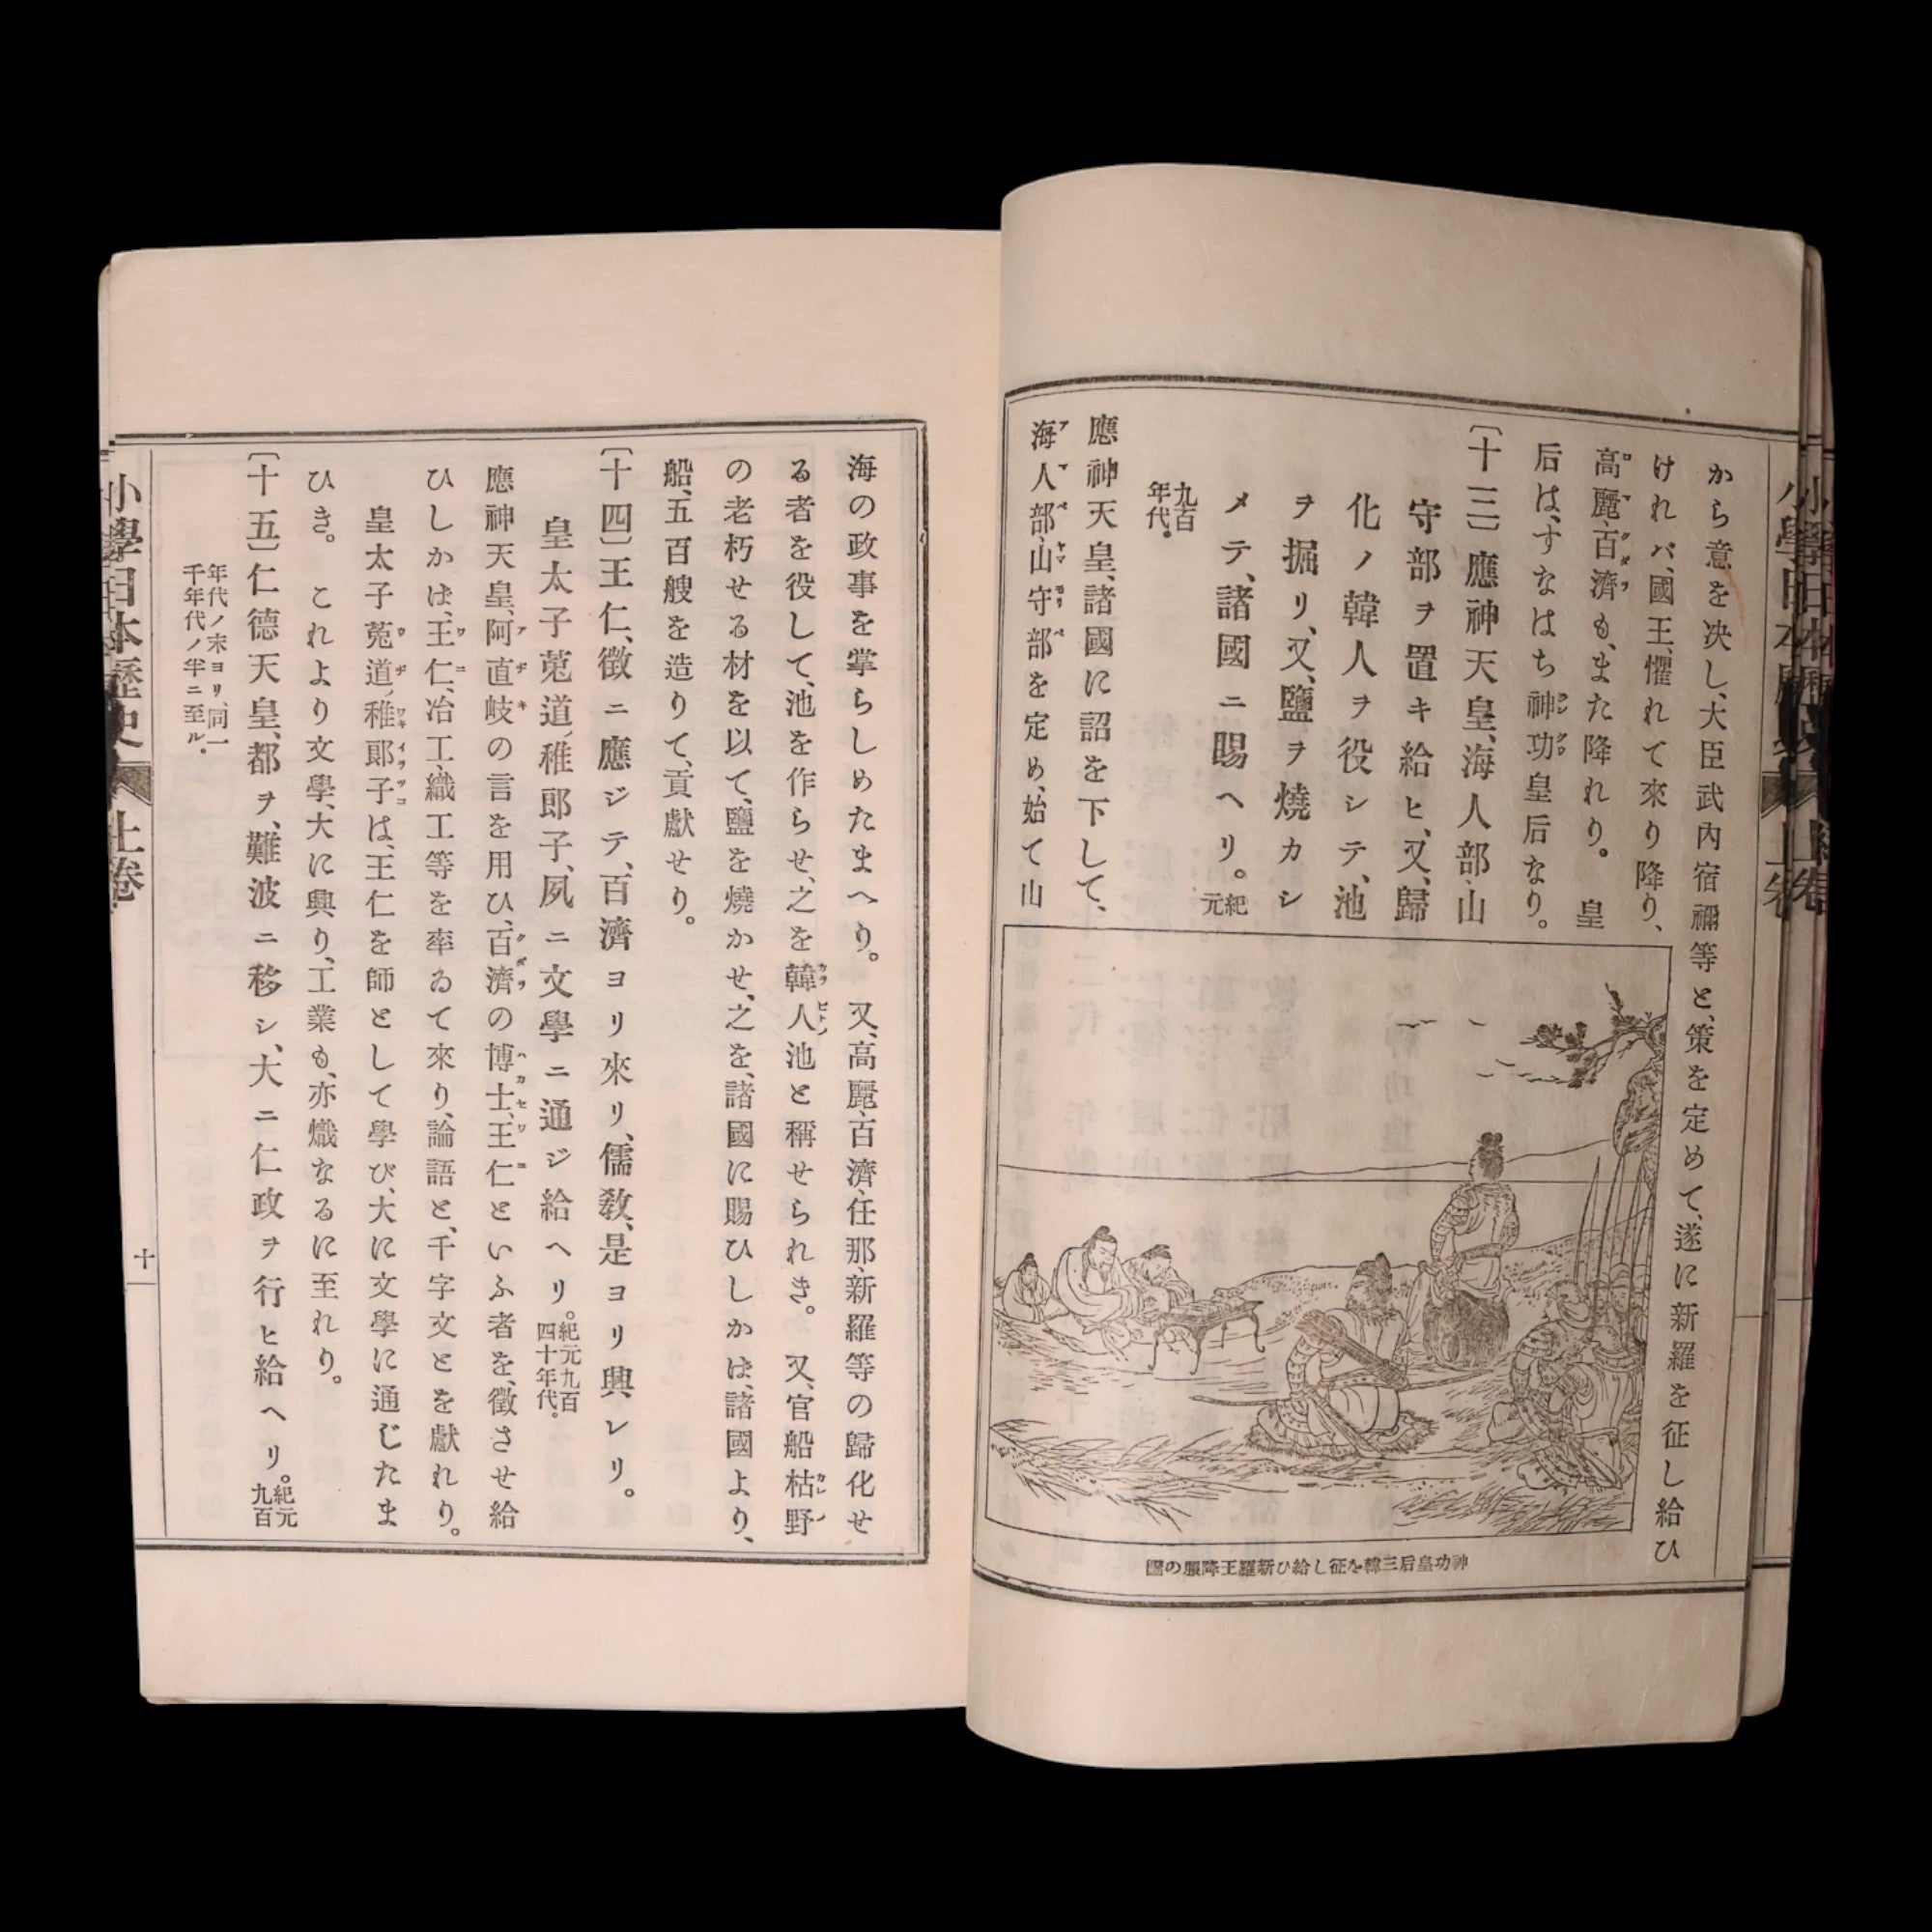 から意を決し、大臣武內宿禰等と、策を定めて、遂に新羅を征し給ひ
けれバ、國王、懼れて來り降り、
高麗、百濟も、また降れり。 皇
后は、すなはち神功皇后なり。
〔十三〕應神天皇、海人部、山
守部ヲ置キ給ヒ、又、歸
化ノ韓人ヲ役シテ、池
ヲ掘リ、又、鹽ヲ燒カシ
メテ、諸國ニ賜ヘリ。紀元
九百年代。
應神天皇、諸國に詔を下して、
海人部、山守部を定め、始て山
神功皇后三韓を征し給ひ新羅王降服の圖
海の政事を掌らしめたまへり。 又、高麗、百濟、任那、新羅等の歸化せ
る者を役して、池を作らせ、之を韓人池と稱せられき。 又、官船枯野
の老朽せる材を以て、鹽を燒かせ、之を、諸國に賜ひしかは、諸國より、
船、五百艘を造りて、貢獻せり。
〔十四〕王仁、徵ニ應ジテ、百濟ヨリ來リ、儒敎、是ヨリ興レリ。
皇太子菟道稚郎子、夙ニ文學ニ通ジ給ヘリ。紀元九百四十年代。
應神天皇、阿直岐の言を用ひ、百濟の博士、王仁といふ者を、徵させ給
ひしかは、王仁、冶工、織工等を率ゐて來り、論語と、千字文とを獻れり。
皇太子菟道稚郎子は、王仁を師として學び、大に文學に通じたま
ひき。 これより文學、大に興り、工業も、亦熾なるに至れり。
〔十五〕仁德天皇、都ヲ、難波ニ移シ、大ニ仁政ヲ行ヒ給ヘリ。紀元九百
年代ノ末ヨリ、同一千年代ノ半ニ至ル。
小學日本歷史 上卷
十